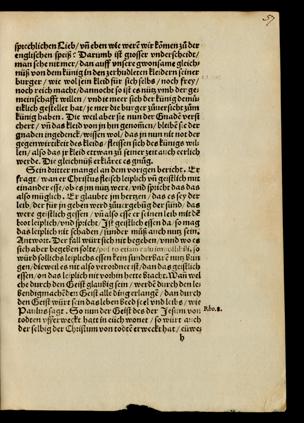 sprechlichen Lieb/ vñ eben wie werē wir kōmen zů der
englischen speiß: Darumb ist grosser vnderscheide/
man sehe nit mer/ dan auff vnsere gwonsame gleich-
nüß von dem künig in den zerhudleren kleidern seiner
burger/ wie wol sein kleid für sich selbs/ noch frey/
noch reich macht/ dannocht so ist es nütz vmb der ge-
meinschafft willen/ vnd ie meer sich der künig demü-
tiklich gestellet hat/ je meer die burger zůuersicht zům
künig haben. Die weil aber sie nun der Gnadē versi
chert/ vñ das kleid von jn hin genomen/ bleibē sie der
gnaden ingedenck/ wissen wol/ das jn nun nit not der
gegenwertikeit des kleids/ fleissen sich des künigs wil-
len/ also das jr kleid ettwan zů seiner zeit auch eerlich
werde. Die gleichnüß erkläret es gnůg.
Sein dritter mangel an dem vorigen bericht. Er
fragt/ wan er Christus fleisch leiplich vñ geistlich mit
einander esse/ ob es jm nutz were/ vnd spricht das das
also müglich. Er glaubte jm hertzen/ das es sey der
leib/ der für jn geben werd zůuergebüg der sünd/ das
were geistlich gessen/ vñ also esse er seinen leib mit dē
brot leiplich/ vnd spricht/ Ist geistlich essen da/ so mag
das leiplich nit schaden/ sunder můß auch nutz sein,
Antwort. Der fall würt sich nit begeben/ vnnd wo es
sich aber begeben solte/ so
würd sollichs leiplichs essen kein sunderbarē nutz brin
gen/ dieweil es nit also verordnet ist/ dan das geistlich
essen/ on das leiplich nit vorhin hette bracht. Wan wel
che durch den Geist glaubig sein/ werdē durch den le-
bendigmachēden Geist alle ding erlangē/ dan durch
den Geist würt sein das leben beed seel vnd leibs/ wie
Paulus sagt. So nun der Geist des der Jesum von
Rho. 8.
todten vfferweckt hatt in eüch wonet/ so würt auch
der selbig der Christum von todtē erweckt hat/ eüwer
b